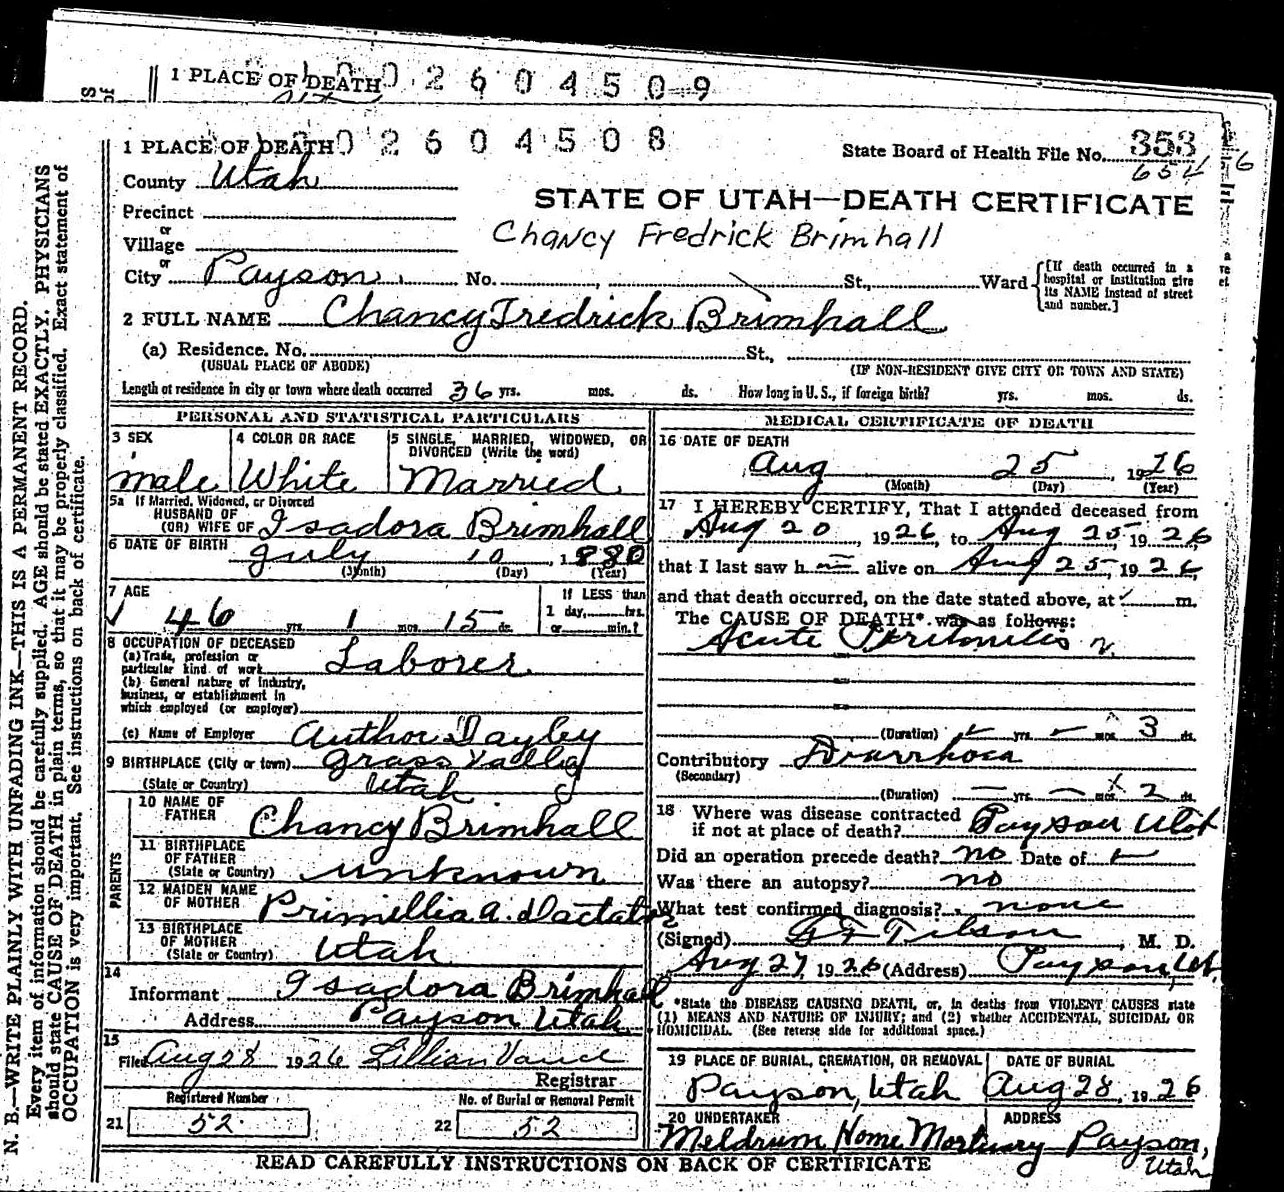 1 PLACE OF DEATH 0 2 6 0 4 5 0 9
1 PLACE OF DEATH 0 2 6 0 4 5 0 8
State Board of Health File No. 353
654
County Utah
STATE OF UTAH—DEATH CERTIFICATE
Precinct
or
Village
Chancy Fredrick Brimhall
or
City Payson No. St., Ward
[If death occurred in a hospital or institution give its NAME instead of street and number.]
2 FULL NAME Chancy Fredrick Brimhall
(a) Residence. No. St.,
(USUAL PLACE OF ABODE) (IF NON-RESIDENT GIVE CITY OR TOWN AND STATE)
Length of residence in city or town where death occurred 36 yrs. mos. ds. How long in U. S., if foreign birth? yrs. mos. ds.
PERSONAL AND STATISTICAL PARTICULARS
3 SEX
male
4 COLOR OR RACE
White
5 SINGLE, MARRIED, WIDOWED, OR
DIVORCED (Write the word)
Married
5a If Married, Widowed, or Divorced
HUSBAND OF
(OR) WIFE OF Isadora Brimhall
6 DATE OF BIRTH July 10, 1880
(Month) (Day) (Year)
7 AGE
46 yrs. 1 mos. 15 ds.
If LESS than
1 day, hrs.
or min.?
8 OCCUPATION OF DECEASED
(a) Trade, profession or
particular kind of work Laborer
(b) General nature of Industry,
business, or establishment in
which employed (or employer)
(c) Name of Employer Author Dayley
9 BIRTHPLACE (City or town) Grass Valley
(State or Country) Utah
PARENTS
10 NAME OF
FATHER Chancy Brimhall
11 BIRTHPLACE
OF FATHER
(State or Country) unknown
12 MAIDEN NAME
OF MOTHER Primellia A.
13 BIRTHPLACE
OF MOTHER
(State or Country) Utah
14
Informant Isadora Brimhall
Address Payson Utah
15
Filed Aug 28 1926 Lillian Vance
Registrar
Registered Number
21 52
No. of Burial or Removal Permit
22 52
MEDICAL CERTIFICATE OF DEATH
16 DATE OF DEATH
Aug 25, 1926
(Month) (Day) (Year)
17 I HEREBY CERTIFY, That I attended deceased from
Aug 20, 1926, to Aug 25, 1926,
that I last saw h alive on Aug 25, 1926
and that death occurred, on the date stated above, at m.
The CAUSE OF DEATH* was as follows:
Acute Peritonitis
(Duration) yrs. mos. 3 ds.
Contributory Diarrhoea
(Secondary)
(Duration) yrs. mos. 2 ds.
18 Where was disease contracted
if not at place of death? Payson Utah
Did an operation precede death? no Date of
Was there an autopsy? no
What test confirmed diagnosis? none
(Signed) Tilson, M. D.
Aug 27, 1926 (Address) Payson, Ut.
*State the DISEASE CAUSING DEATH, or, in deaths from VIOLENT CAUSES state
(1) MEANS AND NATURE OF INJURY; and (2) whether ACCIDENTAL, SUICIDAL OR
HOMICIDAL. (See reverse side for additional space.)
19 PLACE OF BURIAL, CREMATION, OR REMOVAL
Payson, Utah
DATE OF BURIAL
Aug 28, 1926
20 UNDERTAKER ADDRESS
Meldrum Home Mortuary Payson,
Utah
READ CAREFULLY INSTRUCTIONS ON BACK OF CERTIFICATE
N. B.—WRITE PLAINLY WITH UNFADING INK—THIS IS A PERMANENT RECORD.
Every item of information should be carefully supplied. AGE should be stated EXACTLY. PHYSICIANS
should state CAUSE OF DEATH in plain terms, so that it may be properly classified. Exact statement of
OCCUPATION is very important. See instructions on back of certificate.